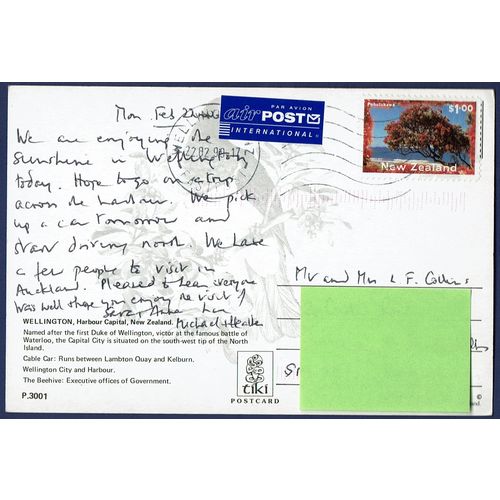 Mon Feb 22nd
PAR AVION
airPOST
INTERNATIONAL
Pohutukawa
$1.00
New Zealand
We are enjoying the
sunshine in Wellington
today. Hope to go on a trip
across the harbour. We pick
up a car tomorrow and
start driving north. We have
a few people to visit in
Auckland. Pleased to hear everyone
was well & hope you enjoy the visit of
Michael & Heather
Mr and Mrs L F Collins
WELLINGTON, Harbour Capital, New Zealand.
Named after the first Duke of Wellington, victor at the famous battle of
Waterloo, the Capital City is situated on the south-west tip of the North
Island.
Cable Car: Runs between Lambton Quay and Kelburn.
Wellington City and Harbour.
The Beehive: Executive offices of Government.
P.3001
tiki
POSTCARD
©